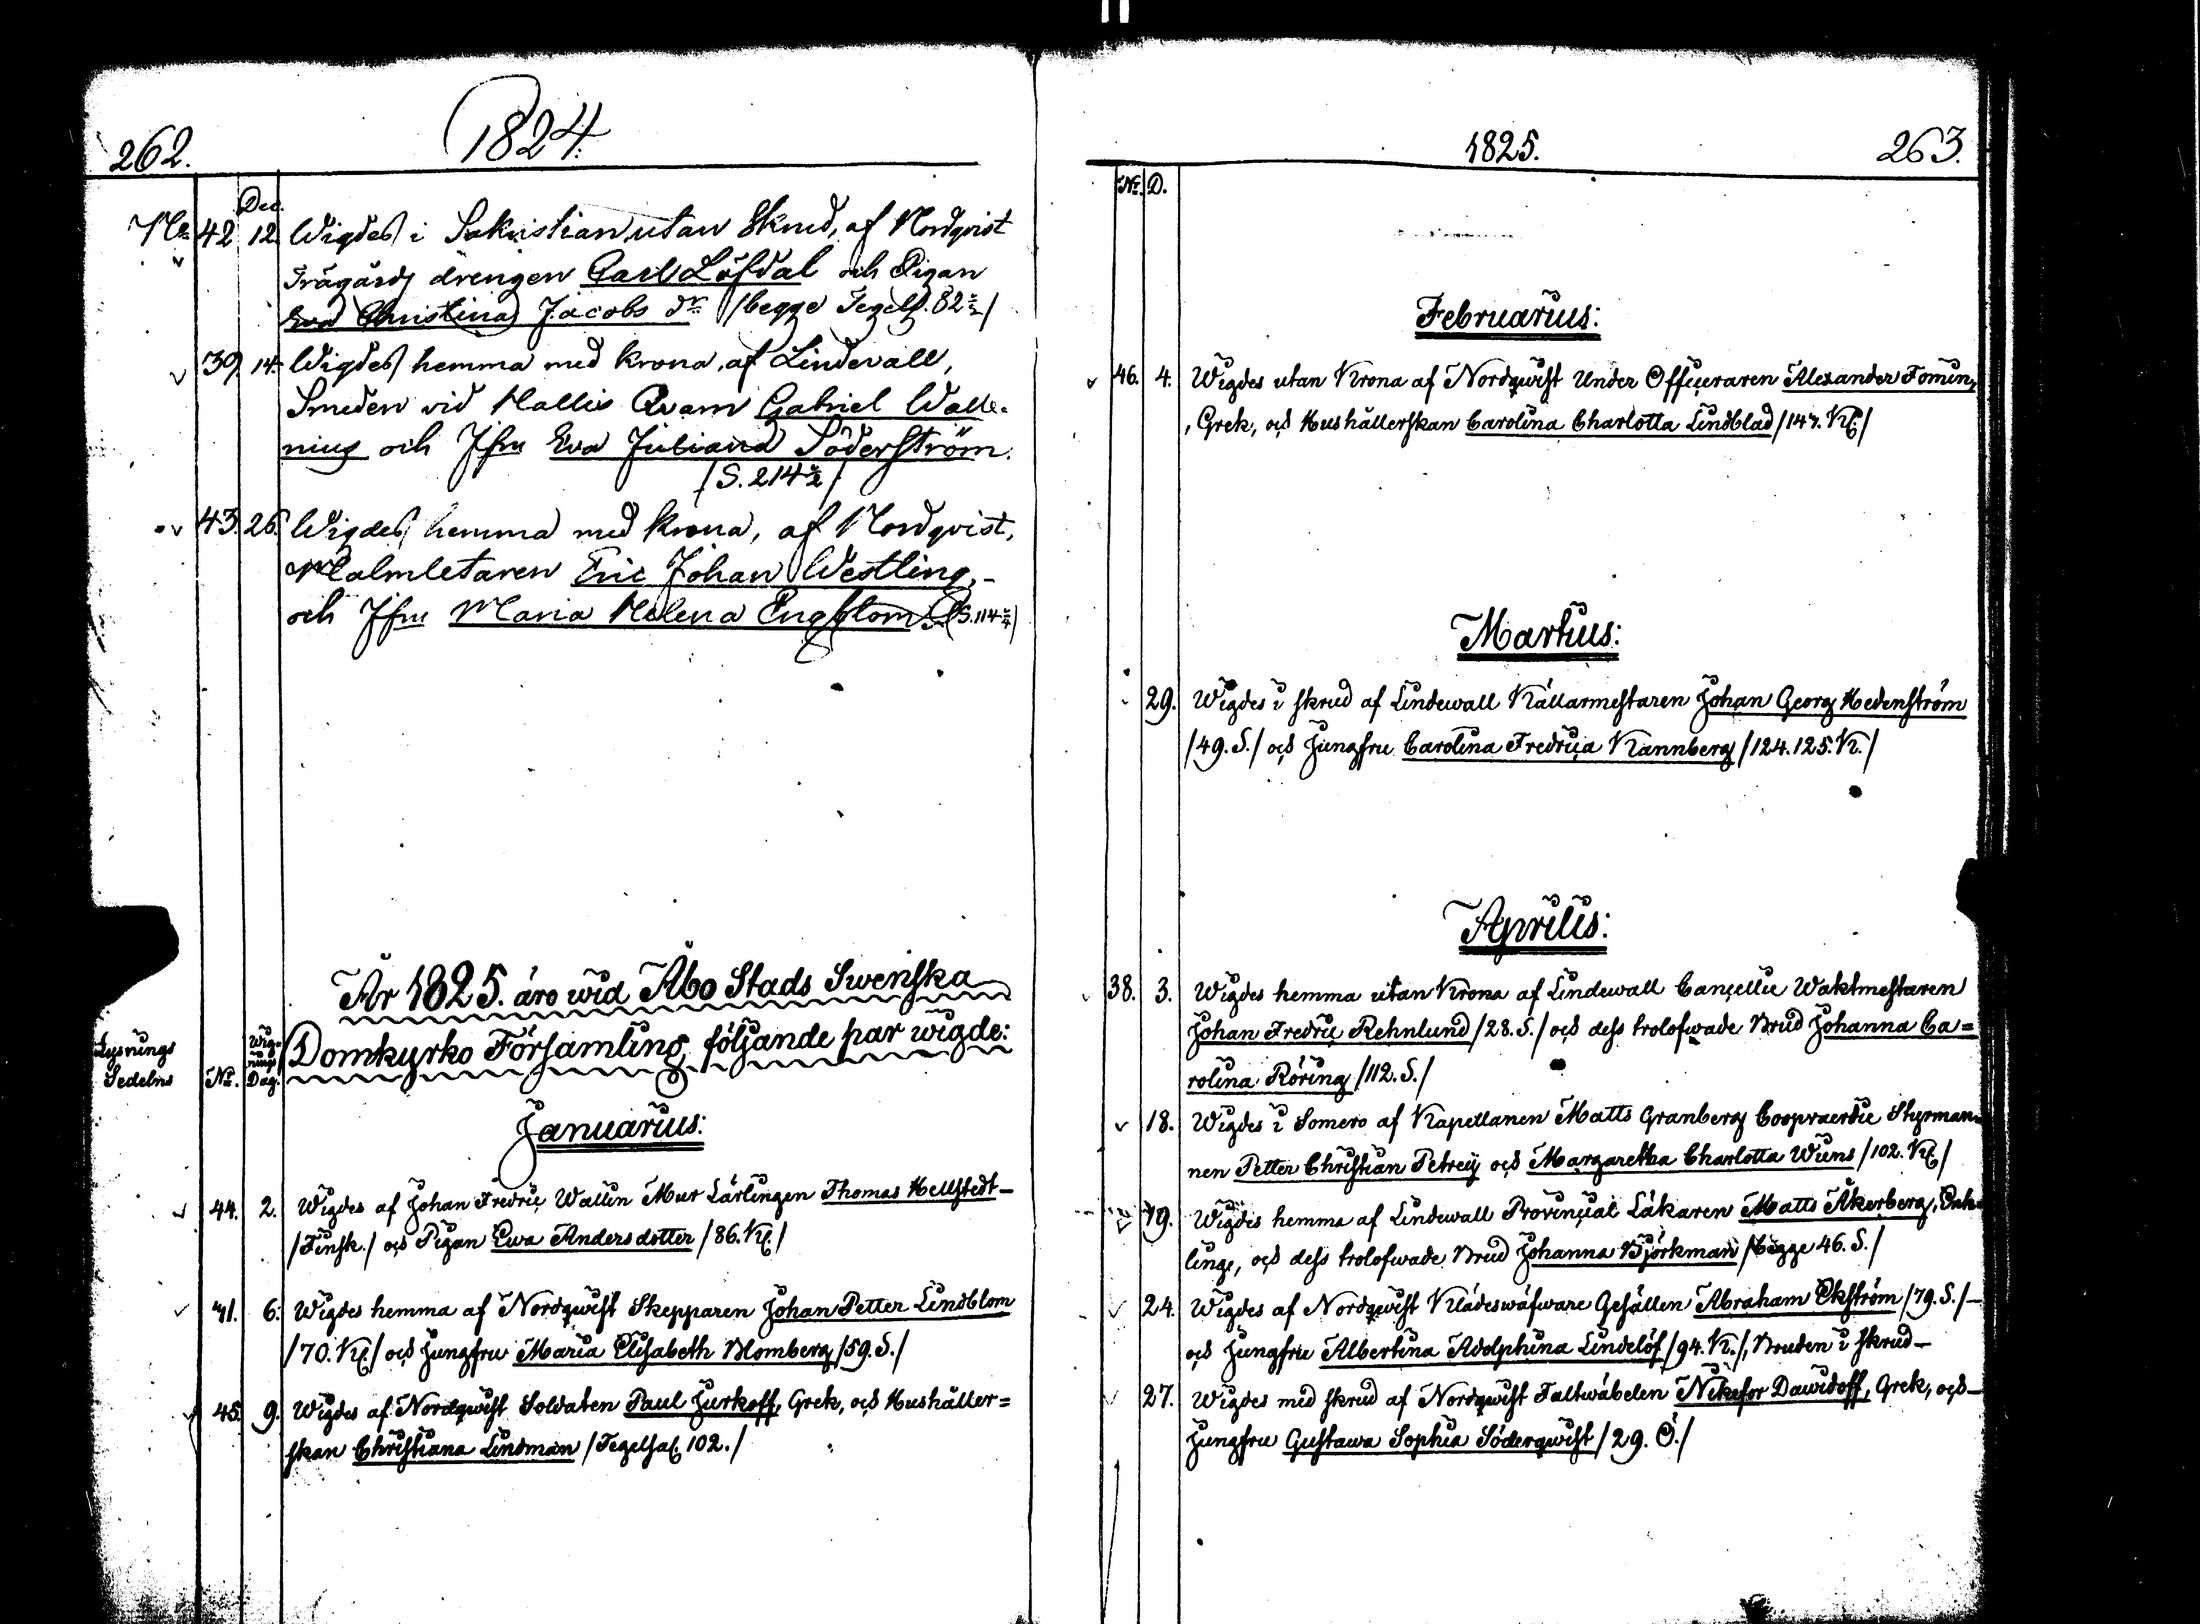 262.
1824.
Dec.
No 42 12. Wigdes i Sakristian utan Skrud, af Nordqvist
Trägårds drengen Carl Löfdal och Pigan
Eva Christina Jacobs dr /begge Tegels. 82 /
39 14. Wigdes hemma med krona, af Lindevall,
Smeden vid Hallis Qvarn Gabriel Walle-
nius och Jfru Eva Juliana Söderström.
/S. 214 /
43. 26. Wigdes hemma med krona, af Nordqvist,
Malmletaren Eric Johan Westling,
och Jfru Maria Helena Engblom /S. 114 /
År 1825. äro wid Åbo Stads Swenska
Domkyrko Församling, följande par wigde:
Lysnings
Sedelns
No.
Wig-
nings
Dag.
Januarius:
44. 2. Wigdes af Johan Fredric Wallin Mur Lärlingen Thomas Hellstedt
/Finsk./ och Pigan Ewa Andersdotter /86. Kl./
41. 6. Wigdes hemma af Nordqwist Skepparen Johan Petter Lindblom
/70. Kl/ och Jungfru Maria Elisabeth Blomberg /59. S./
45. 9. Wigdes af Nordqwist Soldaten Paul Jurkoff, Grek, och Hushåller=
skan Christiana Lindman /Tegelsal. 102./
1825.
263.
No. D.
Februarius:
46. 4. Wigdes utan Krona af Nordqwist Under Officeraren Alexander Fomin,
, Grek, och Hushållerskan Carolina Charlotta Lindblad /147. Kl./
Martius:
29. Wigdes i skrud af Lindewall Källarmestaren Johan Georg Hedenström
/49. S./ och Jungfru Carolina Fredrica Rannberg /124. 125. K./
Aprilis:
38. 3. Wigdes hemma utan Krona af Lindewall Cancellie Waktmestaren
Johan Fredric Rehnlund /28. S./ och dess trolofwade Brud Johanna Ca=
rolina Röring /112. S./
18. Wigdes i Somero af Kapellanen Matts Granberg Coopvaerdie Styrman-
nen Petter Christian Petreij och Margaretha Charlotta Wiens /102. Kl/
19. Wigdes hemma af Lindewall Provincial Läkaren Matts Åkerberg, Enk-
linge, och dess trolofwade Brud Johanna Björkman /begge 46. S./
24. Wigdes af Nordqwist Klädeswäfware Gesällen Abraham Ekström /79. S./
och Jungfru Albertina Adolphina Lindelöf /94. K./, Bruden i skrud
27. Wigdes med skrud af Nordqwist Faltwäbelen Nikefor Dawidoff, Grek, och
Jungfru Gustawa Sophia Söderqwist /29. Ö./